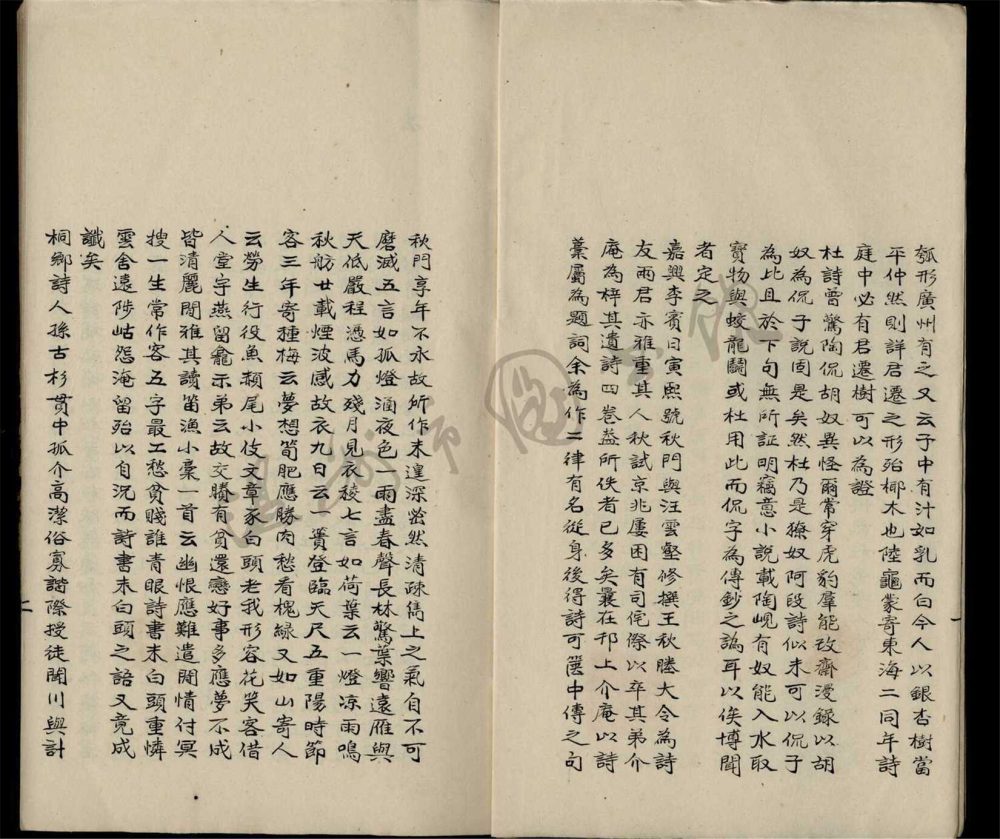 瓠形廣州有之又云子中有汁如乳而白今人以銀杏樹當
平仲然則詳君遷之形殆椰木也陸龜蒙寄東海二同年詩
庭中必有君遷樹可以為證
杜詩曾驚陶侃胡奴異怪爾常穿虎豹羣能改齋漫錄以胡
奴為侃子說固是矣然杜乃是獠奴阿段詩似未可以侃子
為比且於下句無所証明竊意小說載陶峴有奴能入水取
寶物與蛟龍鬬或杜用此而侃字為傳鈔之譌耳以俟博聞
者定之
嘉興李賓日寅熙號秋門與汪雲壑修撰王秋塍大令為詩
友雨君亦雅重其人秋試京兆屢困有司侘傺以卒其弟介
庵為梓其遺詩四卷蓋所佚者已多矣曩在邗上介庵以詩
藁屬為題詞余為作二律有名從身後得詩可篋中傳之句
秋門享年不永故所作未達深巭然清疎雋上之氣自不可
磨滅五言如孤燈涵夜色一雨盡春聲長林驚葉響遠雁與
天低嚴程憑馬力殘月見衣稜七言如荷葉云一燈凉雨鳴
秋舫廿載煙波感故衣九日云一簣登臨天尺五重陽時節
客三年寄種梅云夢想筍肥應勝肉愁看槐綠又如山寄人
云勞生行役魚赬尾小伎文章豕白頭老我形容花笑客借
人堂宇燕留龕示弟云故交勝有貧還戀好事多應夢不成
皆清麗閒雅其讀笛漁小稾一首云幽恨應難遣閒情付冥
搜一生常作客五字最工愁貧賤誰青眼詩書未白頭重憐
雲舍遠陟岵怨淹留殆以自況而詩書未白頭之語又竟成
讖矣
桐鄉詩人孫古杉貫中孤介高潔俗寡諧際授徒聞川與計